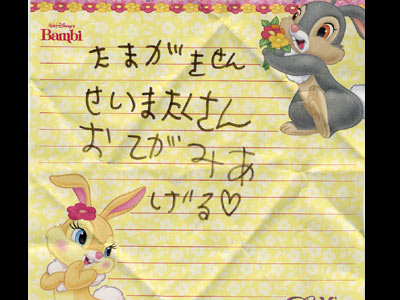 WALT DISNEY'S
Bambi
たまがきさん
せいまたくさん
おてがみあ
げる♡